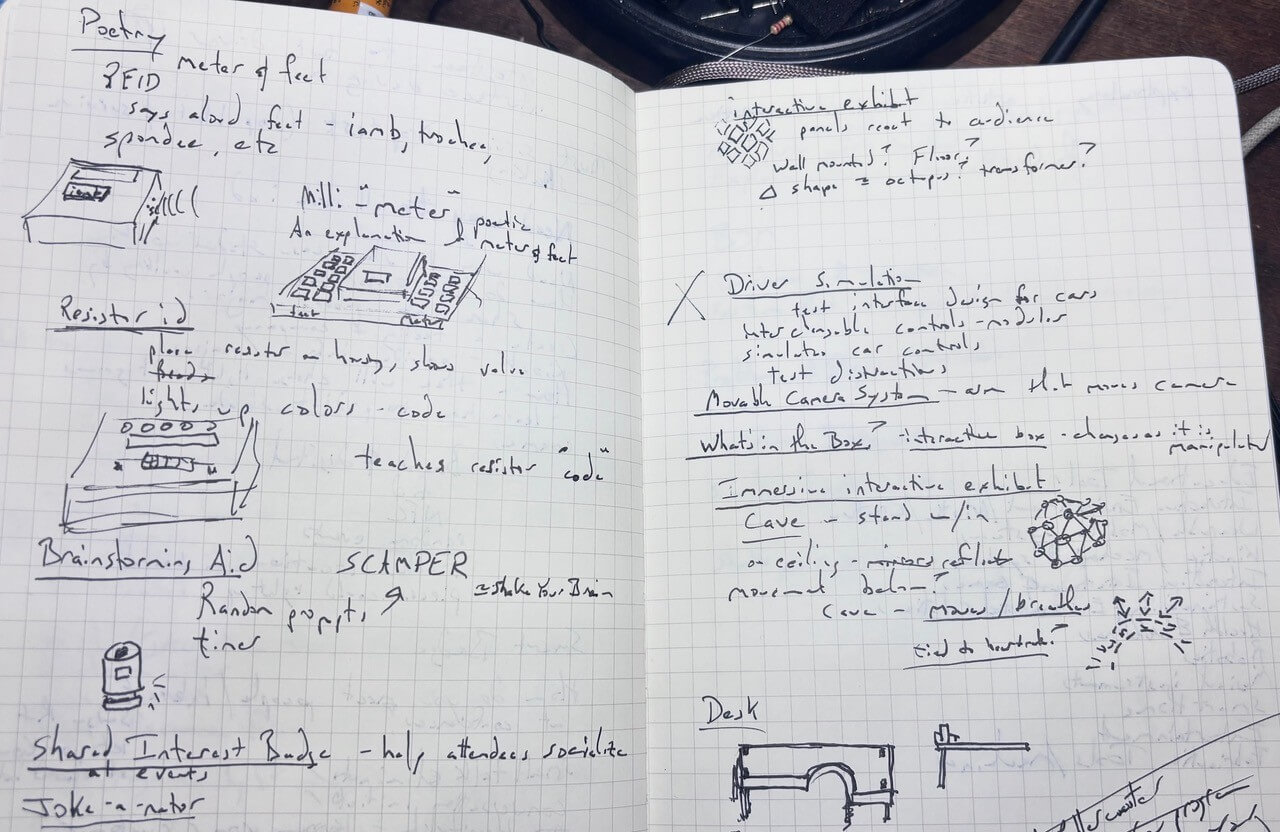 Poetry
RFID meter & feet
says aloud feet - iamb, trochee,
spondee, etc
iamb
Milli-"meter"
An explanation of poetic
meter & feet
feet
meter
Resistor id
place resistor on housing, shows value
lights up colors - code
teaches resistor "code"
Brainstorming Aid
SCAMPER
Random prompts
timer
= Shake Your Brain
Shared Interest Badge - help attendees socialize
at events
Joke-a-nator
interactive exhibit
panels react to audience
wall mounted? Floor?
Δ shape = octopus? transformer?
X
Driver Simulation
test interface design for cars
interchangeable controls - modules
simulates car controls
test distractions
Movable Camera System - arm that moves camera
What's in the Box? - interactive box - changes as it is
manipulated
Immersive interactive exhibit
Cave - stand w/in
on ceiling - mirrors reflect
movement below?
Cave - moves/breathes
tied to heartrate?
Desk